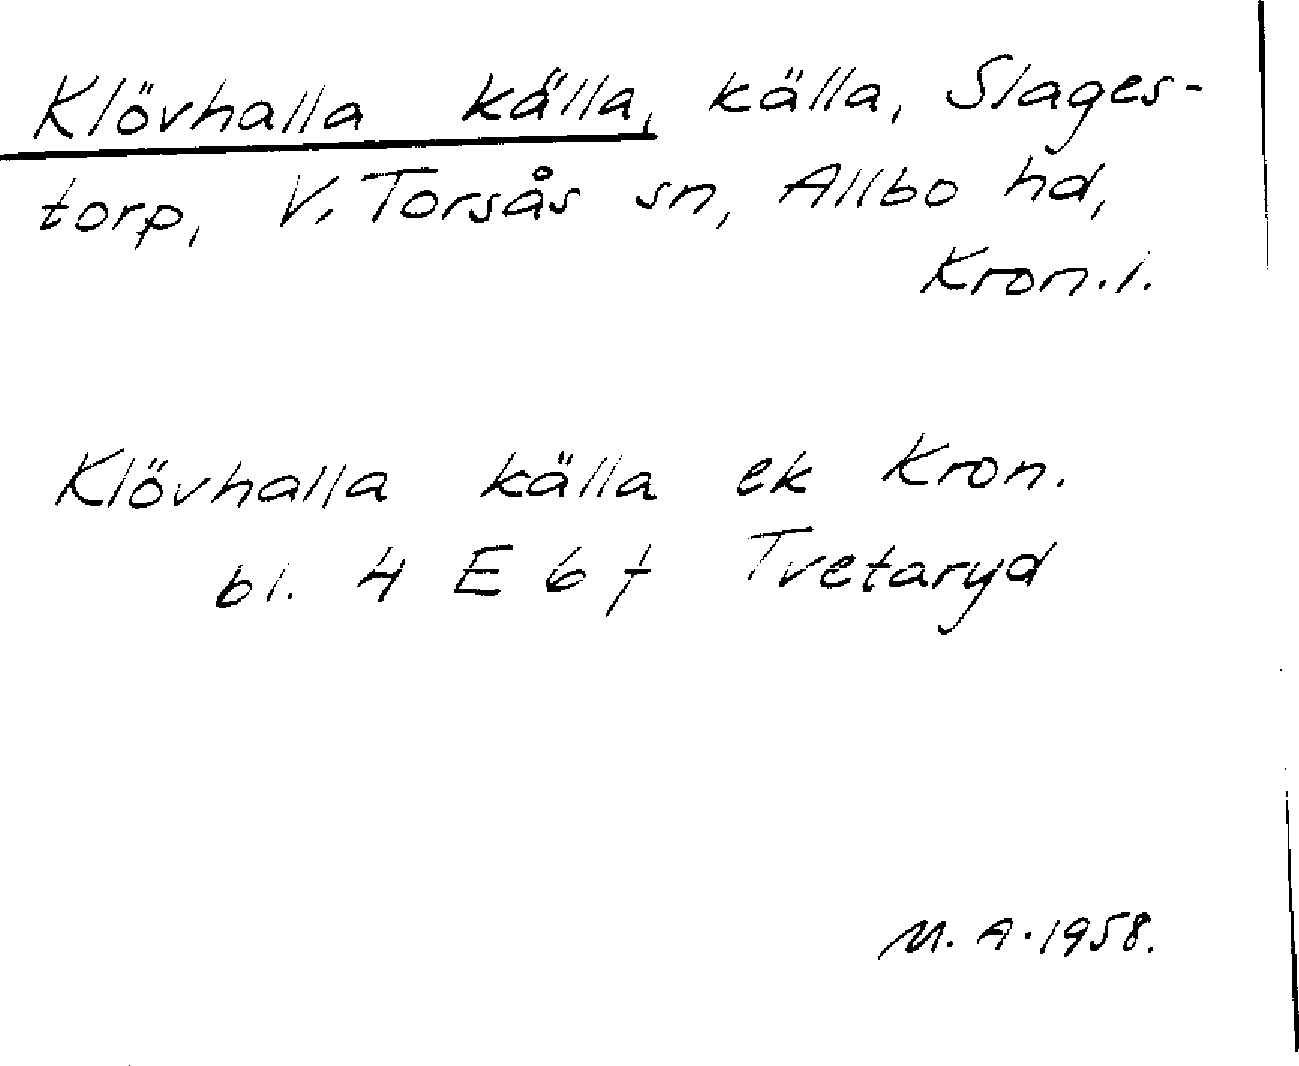 Klövhalla källa, källa, Slages-
torp, V. Torsås sn, Allbo hd,
Kron.l.
Klövhalla källa ek Kron.
bl. 4 E 6 f Tvetaryd
M. A. 1958.